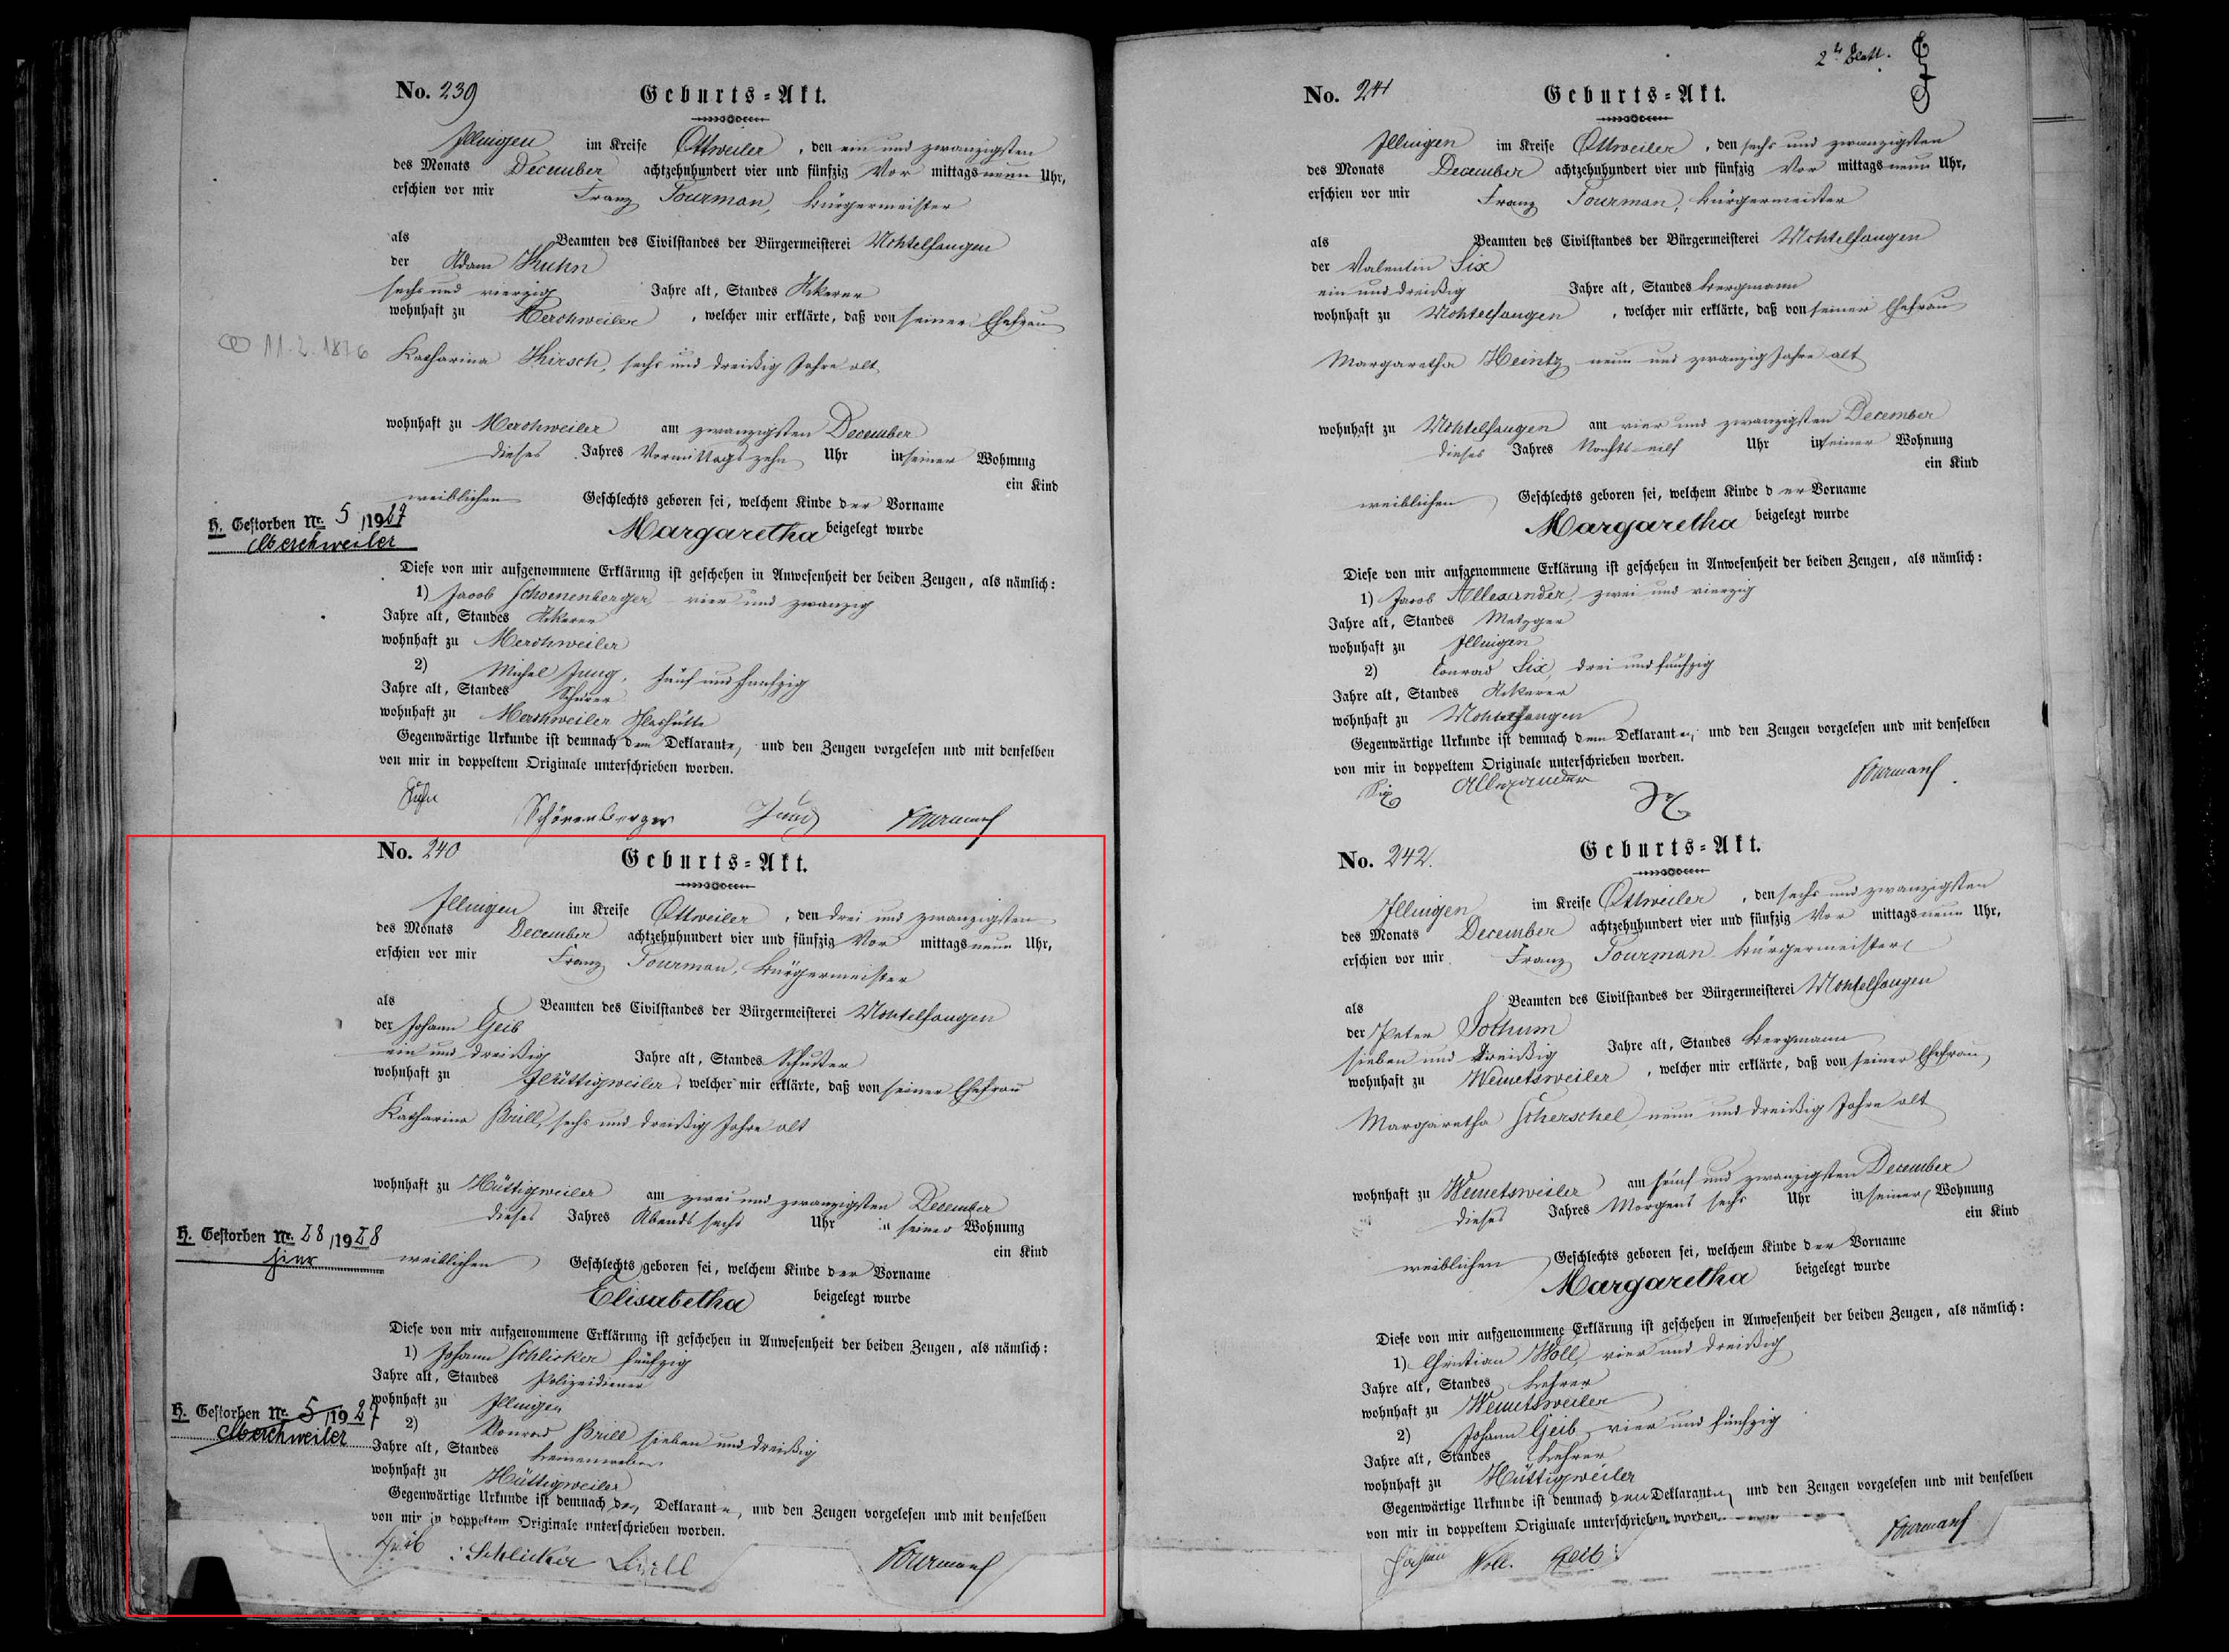 No. 239
Geburts-Akt.
Illingen im Kreise Ottweiler, den ein und zwanzigsten
des Monats December achtzehnhundert vier und fünfzig Vor mittags neun Uhr,
erschien vor mir Franz Fourman, Bürgermeister
als Beamten des Civilstandes der Bürgermeisterei Uchtelfangen
der Adam Kuhn
sechs und vierzig Jahre alt, Standes Ackerer
wohnhaft zu Merchweiler, welcher mir erklärte, daß von seiner Ehefrau
∞ 11.2.1876
Katharina Hirsch, sechs und dreißig Jahre alt
wohnhaft zu Merchweiler am zwanzigsten December
dieses Jahres Vormittags zehn Uhr in seiner Wohnung
ein Kind
weiblichen Geschlechts geboren sei, welchem Kinde der Vorname
H. Gestorben Nr. 5/1927
Merchweiler
Margaretha beigelegt wurde
Diese von mir aufgenommene Erklärung ist geschehen in Anwesenheit der beiden Zeugen, als nämlich:
1) Jacob Schoenenberger, vier und zwanzig
Jahre alt, Standes Ackerer
wohnhaft zu Merchweiler
2) Michel Jung, fünf und fünfzig
Jahre alt, Standes Schürer
wohnhaft zu Merchweiler Glashütte
Gegenwärtige Urkunde ist demnach dem Deklaranten, und den Zeugen vorgelesen und mit denselben
von mir in doppeltem Originale unterschrieben worden.
Kuhn Schönenberger Jung Fourman
No. 240
Geburts-Akt.
Illingen im Kreise Ottweiler, den drei und zwanzigsten
des Monats December achtzehnhundert vier und fünfzig Vor mittags neun Uhr,
erschien vor mir Franz Fourman, Bürgermeister
als Beamten des Civilstandes der Bürgermeisterei Uchtelfangen
der Johann Geib
ein und dreißig Jahre alt, Standes Schuster
wohnhaft zu Hüttigweiler, welcher mir erklärte, daß von seiner Ehefrau
Katharina Brill, sechs und dreißig Jahre alt
wohnhaft zu Hüttigweiler am zwei und zwanzigsten December
dieses Jahres Abends sechs Uhr in seiner Wohnung
ein Kind
H. Gestorben Nr. 28/1928
hier
weiblichen Geschlechts geboren sei, welchem Kinde der Vorname
Elisabetha beigelegt wurde
Diese von mir aufgenommene Erklärung ist geschehen in Anwesenheit der beiden Zeugen, als nämlich:
1) Johann Schlicker fünfzig
Jahre alt, Standes Polizeidiener
wohnhaft zu Illingen
H. Gestorben Nr. 5/1927
Merchweiler
2) Konrad Brill sieben und dreißig
Jahre alt, Standes Leinenweber
wohnhaft zu Hüttigweiler
Gegenwärtige Urkunde ist demnach den Deklaranten, und den Zeugen vorgelesen und mit denselben
von mir in doppeltem Originale unterschrieben worden.
Geib Schlicker Brill Fourman
2tes Blatt.
No. 241
Geburts-Akt.
Illingen im Kreise Ottweiler, den sechs und zwanzigsten
des Monats December achtzehnhundert vier und fünfzig Vor mittags neun Uhr,
erschien vor mir Franz Fourman, Bürgermeister
als Beamten des Civilstandes der Bürgermeisterei Uchtelfangen
der Valentin Six
ein und dreißig Jahre alt, Standes Bergmann
wohnhaft zu Uchtelfangen, welcher mir erklärte, daß von seiner Ehefrau
Margaretha Heintz neun und zwanzig Jahre alt
wohnhaft zu Uchtelfangen am vier und zwanzigsten December
dieses Jahres Nachts eilf Uhr in seiner Wohnung
ein Kind
weiblichen Geschlechts geboren sei, welchem Kinde der Vorname
Margaretha beigelegt wurde
Diese von mir aufgenommene Erklärung ist geschehen in Anwesenheit der beiden Zeugen, als nämlich:
1) Jacob Allexander, zwei und vierzig
Jahre alt, Standes Metzger
wohnhaft zu Illingen
2) Conrad Six, drei und fünfzig
Jahre alt, Standes Ackerer
wohnhaft zu Uchtelfangen
Gegenwärtige Urkunde ist demnach dem Deklaranten, und den Zeugen vorgelesen und mit denselben
von mir in doppeltem Originale unterschrieben worden.
Six Allexander Fourman
No. 242.
Geburts-Akt.
Illingen im Kreise Ottweiler, den sechs und zwanzigsten
des Monats December achtzehnhundert vier und fünfzig Vor mittags neun Uhr,
erschien vor mir Franz Fourman Bürgermeister
als Beamten des Civilstandes der Bürgermeisterei Uchtelfangen
der Peter Jochum
sieben und dreißig Jahre alt, Standes Bergmann
wohnhaft zu Wemetsweiler, welcher mir erklärte, daß von seiner Ehefrau
Margaretha Scherschel, neun und dreißig Jahre alt
wohnhaft zu Wemetsweiler am fünf und zwanzigsten December
dieses Jahres Morgens sechs Uhr in seiner Wohnung
ein Kind
weiblichen Geschlechts geboren sei, welchem Kinde der Vorname
Margaretha beigelegt wurde
Diese von mir aufgenommene Erklärung ist geschehen in Anwesenheit der beiden Zeugen, als nämlich:
1) Christian Woll, vier und dreißig
Jahre alt, Standes Lehrer
wohnhaft zu Wemetsweiler
2) Johann Geib, vier und fünfzig
Jahre alt, Standes Lehrer
wohnhaft zu Hüttigweiler
Gegenwärtige Urkunde ist demnach den Deklaranten, und den Zeugen vorgelesen und mit denselben
von mir in doppeltem Originale unterschrieben worden.
Woll. Geib Fourman